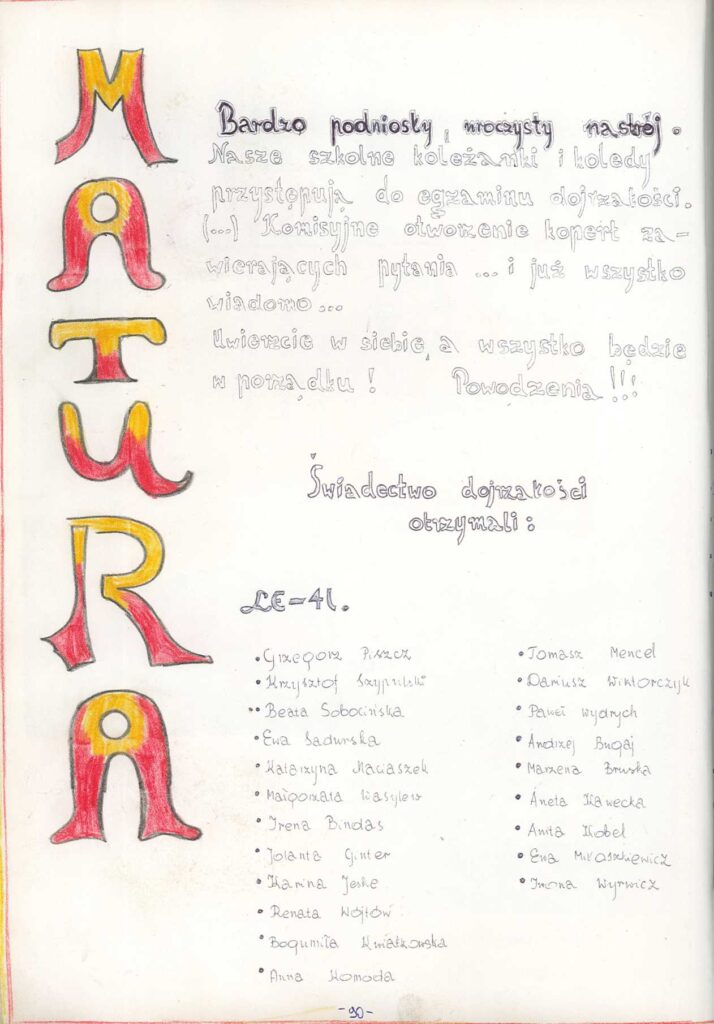 MATURA
Bardzo podniosły, uroczysty nastrój.
Nasze szkolne koleżanki i koledy
przystępują do egzaminu dojrzałości.
(...) Komisyjne otworzenie kopert za-
wierających pytania ... i już wszystko
wiadomo...
Uwierzcie w siebie, a wszystko będzie
w porządku! Powodzenia!!!
Świadectwo dojrzałości
otrzymali:
LE-4l.
• Grzegorz Piszcz
• Krzysztof Szypulski
•• Beata Sobocińska
• Ewa Sadurska
• Katarzyna Maciaszek
• Małgorzata Wasylew
• Irena Bindas
• Jolanta Ginter
• Karina Jeske
• Renata Wójtów
• Bogumiła Kwiatkowska
• Anna Komoda
• Tomasz Mencel
• Dariusz Wiktorczyk
• Paweł Wydrych
• Andrzej Bugaj
• Marzena Bruska
• Aneta Kawecka
• Anita Kobel
• Ewa Miłoszkiewicz
• Iwona Wyrwicz
-90-